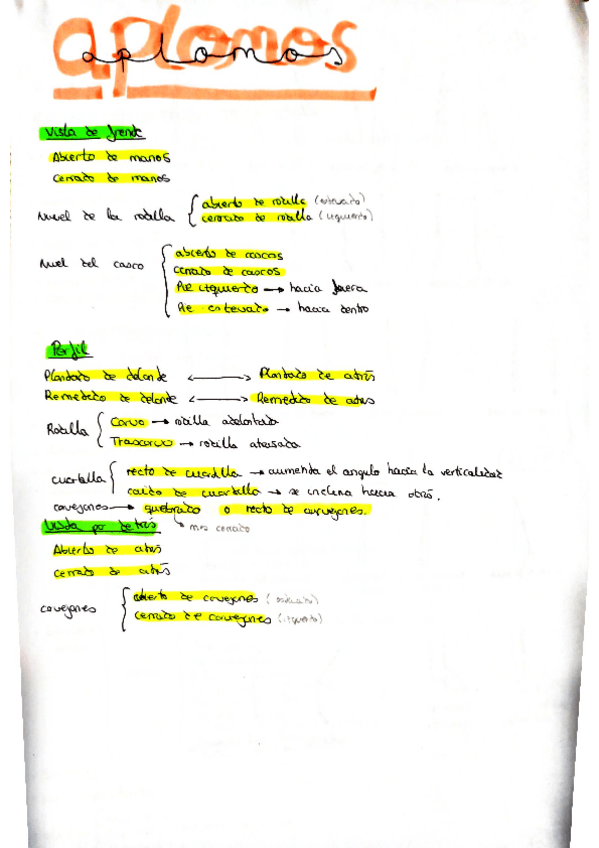 aplomos
aplomos
Vista de frente
Abierto de manos
cerrado de manos
Nivel de la rodilla { abierto de rodilla (estevado)
cerrado de rodilla (izquierdo)
Nivel del casco { abierto de cascos
cerrado de cascos
Pie izquierdo → hacia fuera
Pie estevado → hacia dentro
Perfil
Plantado de delante ←→ Plantado de atrás
Remetido de delante ←→ Remetido de atras
Rodilla { Corvo → rodilla adelantada
Trascorvo → rodilla atrasada
cuartilla { recto de cuartilla → aumenta el angulo hacia la verticalidad
caido de cuartilla → se inclina hacia atrá.
corvejones → quebrado o recto de corvejones.
Vista por detrás
mas cerrado
Abierto de atrás
cerrado de atrás
corvejones { abierto de corvejones (estevado)
cerrado de corvejones (izquierdo)